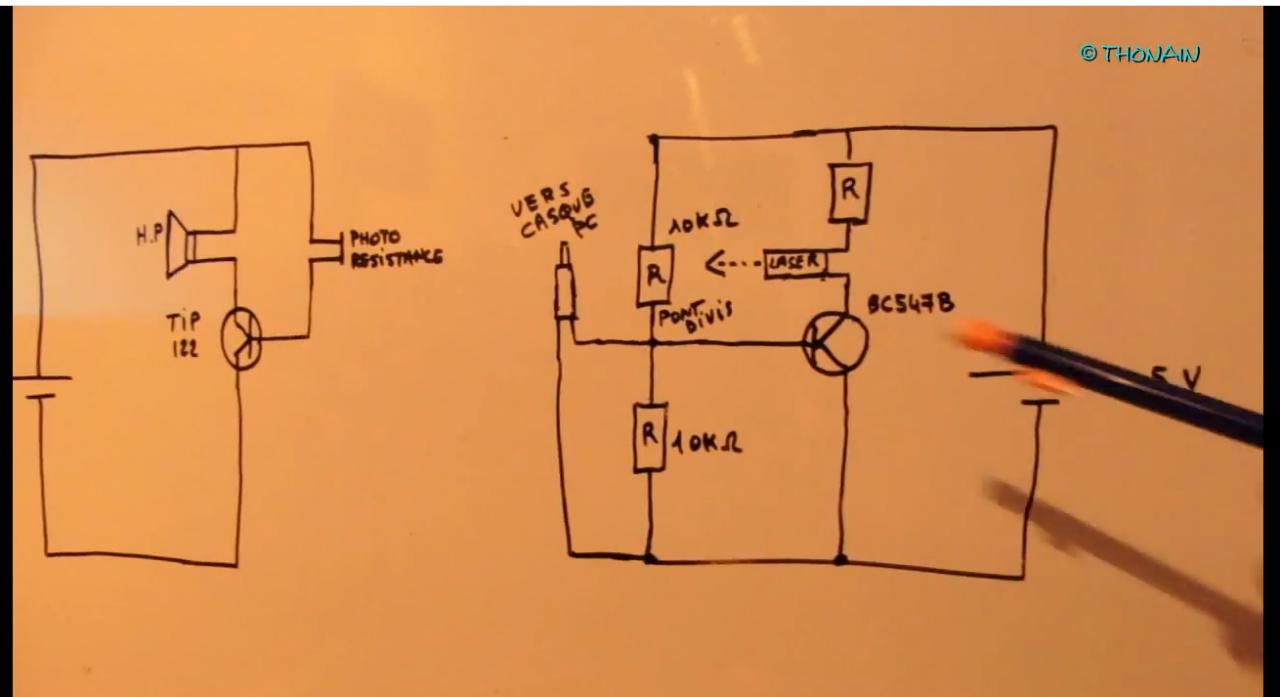 © THONAIN
H.P
PHOTO
RESISTANCE
TiP
122
VERS
CASQUE
PC
10KΩ
R
PONT
DiViS
R
10KΩ
R
LASER
BC547B
5 V